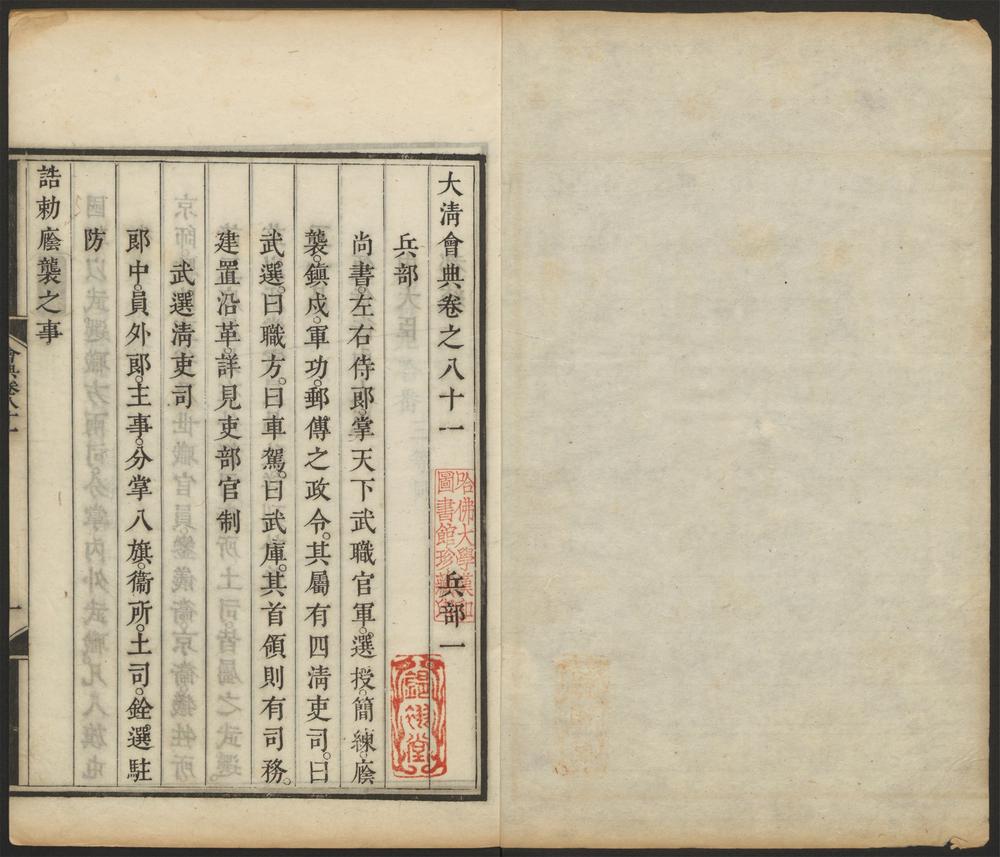 大清會典卷之八十一 兵部一
兵部
尚書。左右侍郎。掌天下武職官軍。選授。簡練。廕
襲。鎭戍。軍功。郵傳之政令。其屬有四清吏司。曰
武選。曰職方。曰車駕。曰武庫。其首領則有司務。
建置沿革。詳見吏部官制
武選清吏司
郎中。員外郎。主事。分掌八旗。衞所。土司。銓選駐
防
誥勅廕襲之事
哈佛大學漢和
圖書館珍藏印
會典卷八十一
一